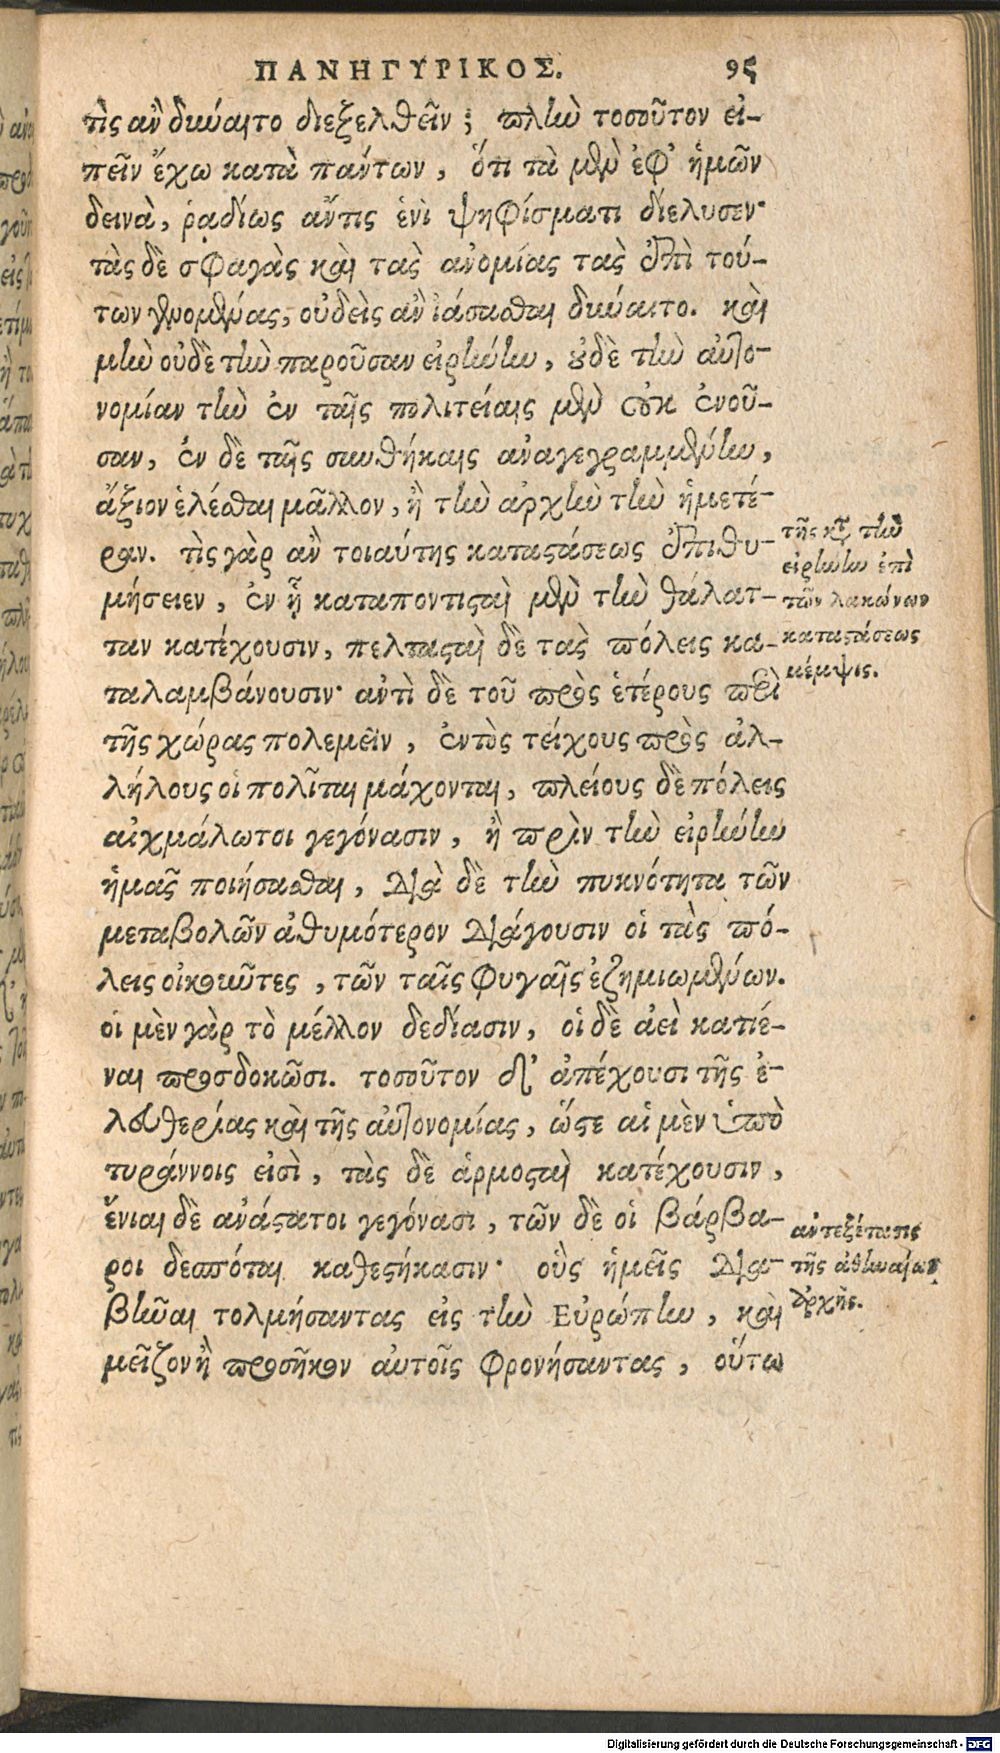 ΠΑΝΗΓΥΡΙΚΟΣ. 95
τὶς ἂν δύναιτο διεξελθεῖν; πλὴν τοσοῦτον εἰ-
πεῖν ἔχω κατὰ πάντων, ὅτι τὰ μὲν ἐφ' ἡμῶν
δεινὰ, ῥᾳδίως ἄντις ἑνὶ ψηφίσματι διέλυσεν·
τὰς δὲ σφαγὰς καὶ τὰς ἀνομίας τὰς ἐπὶ τού-
των γενομένας, οὐδεὶς ἂν ἰάσασθαι δύναιτο. καὶ
μὴν οὐδὲ τὴν παροῦσαν εἰρήνην, οὐδὲ τὴν αὐτο-
νομίαν τὴν ἐν ταῖς πολιτείαις μὲν οὐκ ἐνοῦ-
σαν, ἐν δὲ ταῖς συνθήκαις ἀναγεγραμμένην,
ἄξιον ἑλέσθαι μᾶλλον, ἢ τὴν ἀρχὴν τὴν ἡμετέ-
ραν. τὶς γὰρ ἂν τοιαύτης καταστάσεως ἐπιθυ-
μήσειεν, ἐν ᾗ καταποντισταὶ μὲν τὴν θάλατ-
ταν κατέχουσιν, πελτασταὶ δὲ τὰς πόλεις κα-
ταλαμβάνουσιν· ἀντὶ δὲ τοῦ πρὸς ἑτέρους περὶ
τῆς χώρας πολεμεῖν, ἐντὸς τείχους πρὸς ἀλ-
λήλους οἱ πολῖται μάχονται, πλείους δὲ πόλεις
αἰχμάλωτοι γεγόνασιν, ἢ πρὶν τὴν εἰρήνην
ἡμᾶς ποιήσασθαι, διὰ δὲ τὴν πυκνότητα τῶν
μεταβολῶν ἀθυμότερον διάγουσιν οἱ τὰς πό-
λεις οἰκοῦντες, τῶν ταῖς φυγαῖς ἐζημιωμένων.
οἱ μὲν γὰρ τὸ μέλλον δεδίασιν, οἱ δὲ ἀεὶ κατιέ-
ναι προσδοκῶσι. τοσοῦτον δ' ἀπέχουσι τῆς ἐ-
λευθερίας καὶ τῆς αὐτονομίας, ὥστε αἱ μὲν ὑπὸ
τυράννοις εἰσὶ, τὰς δὲ ἁρμοσταὶ κατέχουσιν,
ἔνιαι δὲ ἀνάστατοι γεγόνασι, τῶν δὲ οἱ βάρβα-
ροι δεσπόται καθεστήκασιν· οὓς ἡμεῖς δια-
βῆναι τολμήσαντας εἰς τὴν Εὐρώπην, καὶ
μεῖζον ἢ προσῆκον αὐτοῖς φρονήσαντας, οὕτω
τῆς κατὰ τὴν
εἰρήνην ἐπὶ
τῶν λακώνων
καταστάσεως
μέμψις.
ἀντεξέτασις
τῆς ἀθηναίων
ἀρχῆς.
Digitalisierung gefördert durch die Deutsche Forschungsgemeinschaft - DFG